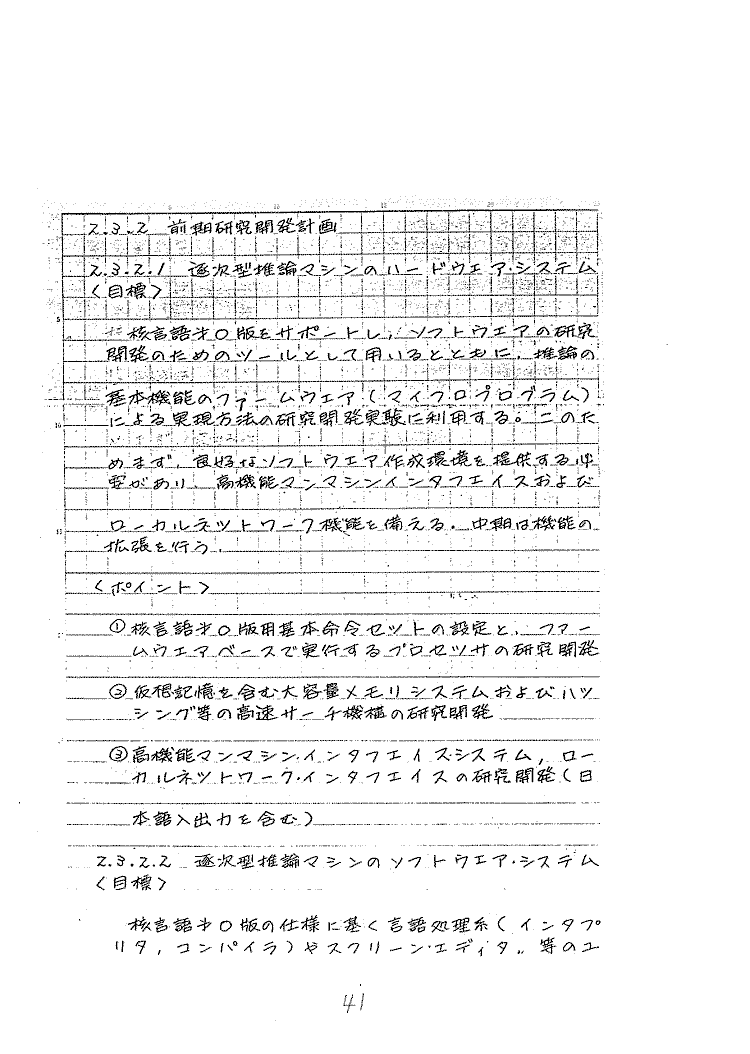 2.3.2 前期研究開発計画
2.3.2.1 逐次型推論マシンのハードウエア・システム
〈目標〉
核言語才0版をサポートし,ソフトウエアの研究
開発のためのツールとして用いるとともに,推論の
基本機能のファームウエア(マイクロプログラム)
による実現方法の研究開発実験に利用する。このた
めまず,良好なソフトウエア作成環境を提供する必
要があり,高機能マンマシンインタフエイスおよび
ローカルネットワーク機能を備える.中期は機能の
拡張を行う.
〈ポイント〉
①核言語才0版用基本命令セットの設定と,ファー
ムウエアベースで実行するプロセッサの研究開発
②仮想記憶を含む大容量メモリシステムおよびハッ
シング等の高速サーチ機構の研究開発
③高機能マンマシン・インタフエイスシステム,ロー
カルネットワーク・インタフエイスの研究開発(日
本語入出力を含む)
2.3.2.2 逐次型推論マシンのソフトウエア・システム
〈目標〉
核言語才0版の仕様に基く言語処理系(インタプ
リタ,コンパイラ)やスクリーン・エディタ,等のユ
41